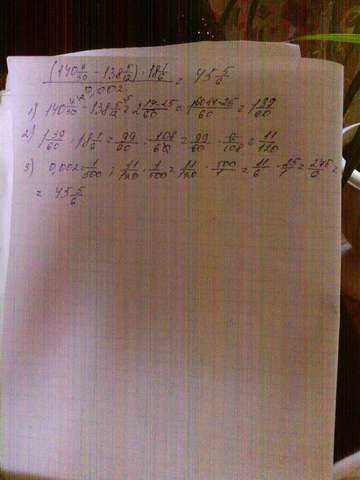 (140 7/30 - 138 5/12) : 18 1/6 / 0,002 = 45 5/6
1) 140 7/30 - 138 5/12 = 2 14-25/60 = 1 60+14-25/60 = 1 39/60
2) 1 39/60 : 18 1/6 = 99/60 : 108/60 = 99/60 · 6/108 = 11/120
3) 0,002 = 1/500; 11/120 : 1/500 = 11/120 · 500/1 = 11/6 · 25/1 = 275/6 =
= 45 5/6